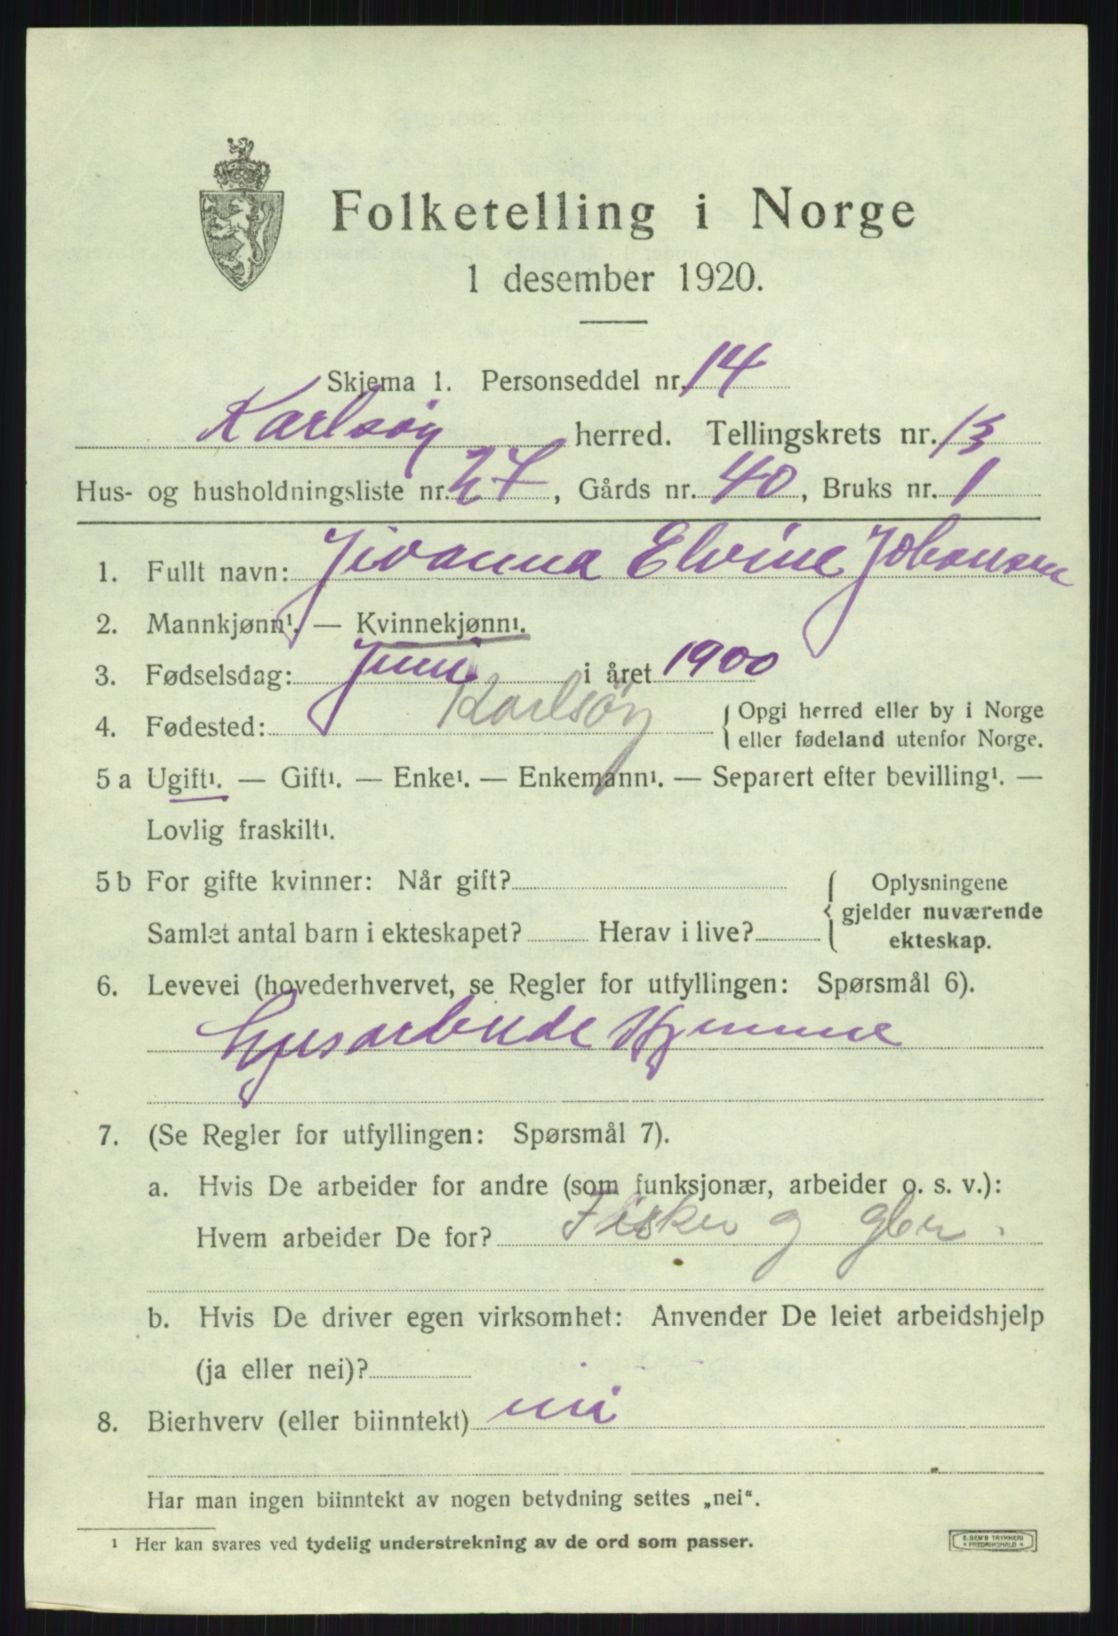 Folketelling i Norge
1 desember 1920.
Skjema 1. Personseddel nr. 14
Karlsøy herred. Tellingskrets nr. 13
Hus- og husholdningsliste nr. 27, Gårds nr. 40, Bruks nr. 1
1. Fullt navn: Jivanna Elvine Johansen
2. Mannkjønn¹. — Kvinnekjønn¹.
3. Fødselsdag: Juni i året 1900
4. Fødested: Karlsøy { Opgi herred eller by i Norge
eller fødeland utenfor Norge.
5 a Ugift¹. — Gift¹. — Enke¹. — Enkemann¹. — Separert efter bevilling¹. —
Lovlig fraskilt¹.
5 b For gifte kvinner: Når gift? { Oplysningene
gjelder nuværende
Samlet antal barn i ekteskapet? Herav i live?
ekteskap.
6. Levevei (hovederhvervet, se Regler for utfyllingen: Spørsmål 6).
Husarbeide Hjemme
7. (Se Regler for utfyllingen: Spørsmål 7).
a. Hvis De arbeider for andre (som funksjonær, arbeider o. s. v.):
Hvem arbeider De for? Fisker og gbr.
b. Hvis De driver egen virksomhet: Anvender De leiet arbeidshjelp
(ja eller nei)?
8. Bierhverv (eller biinntekt) nei
Har man ingen biinntekt av nogen betydning settes „nei“.
¹ Her kan svares ved tydelig understrekning av de ord som passer.
E. SEM'S TRYKKERI
* FREDRIKSHALD *